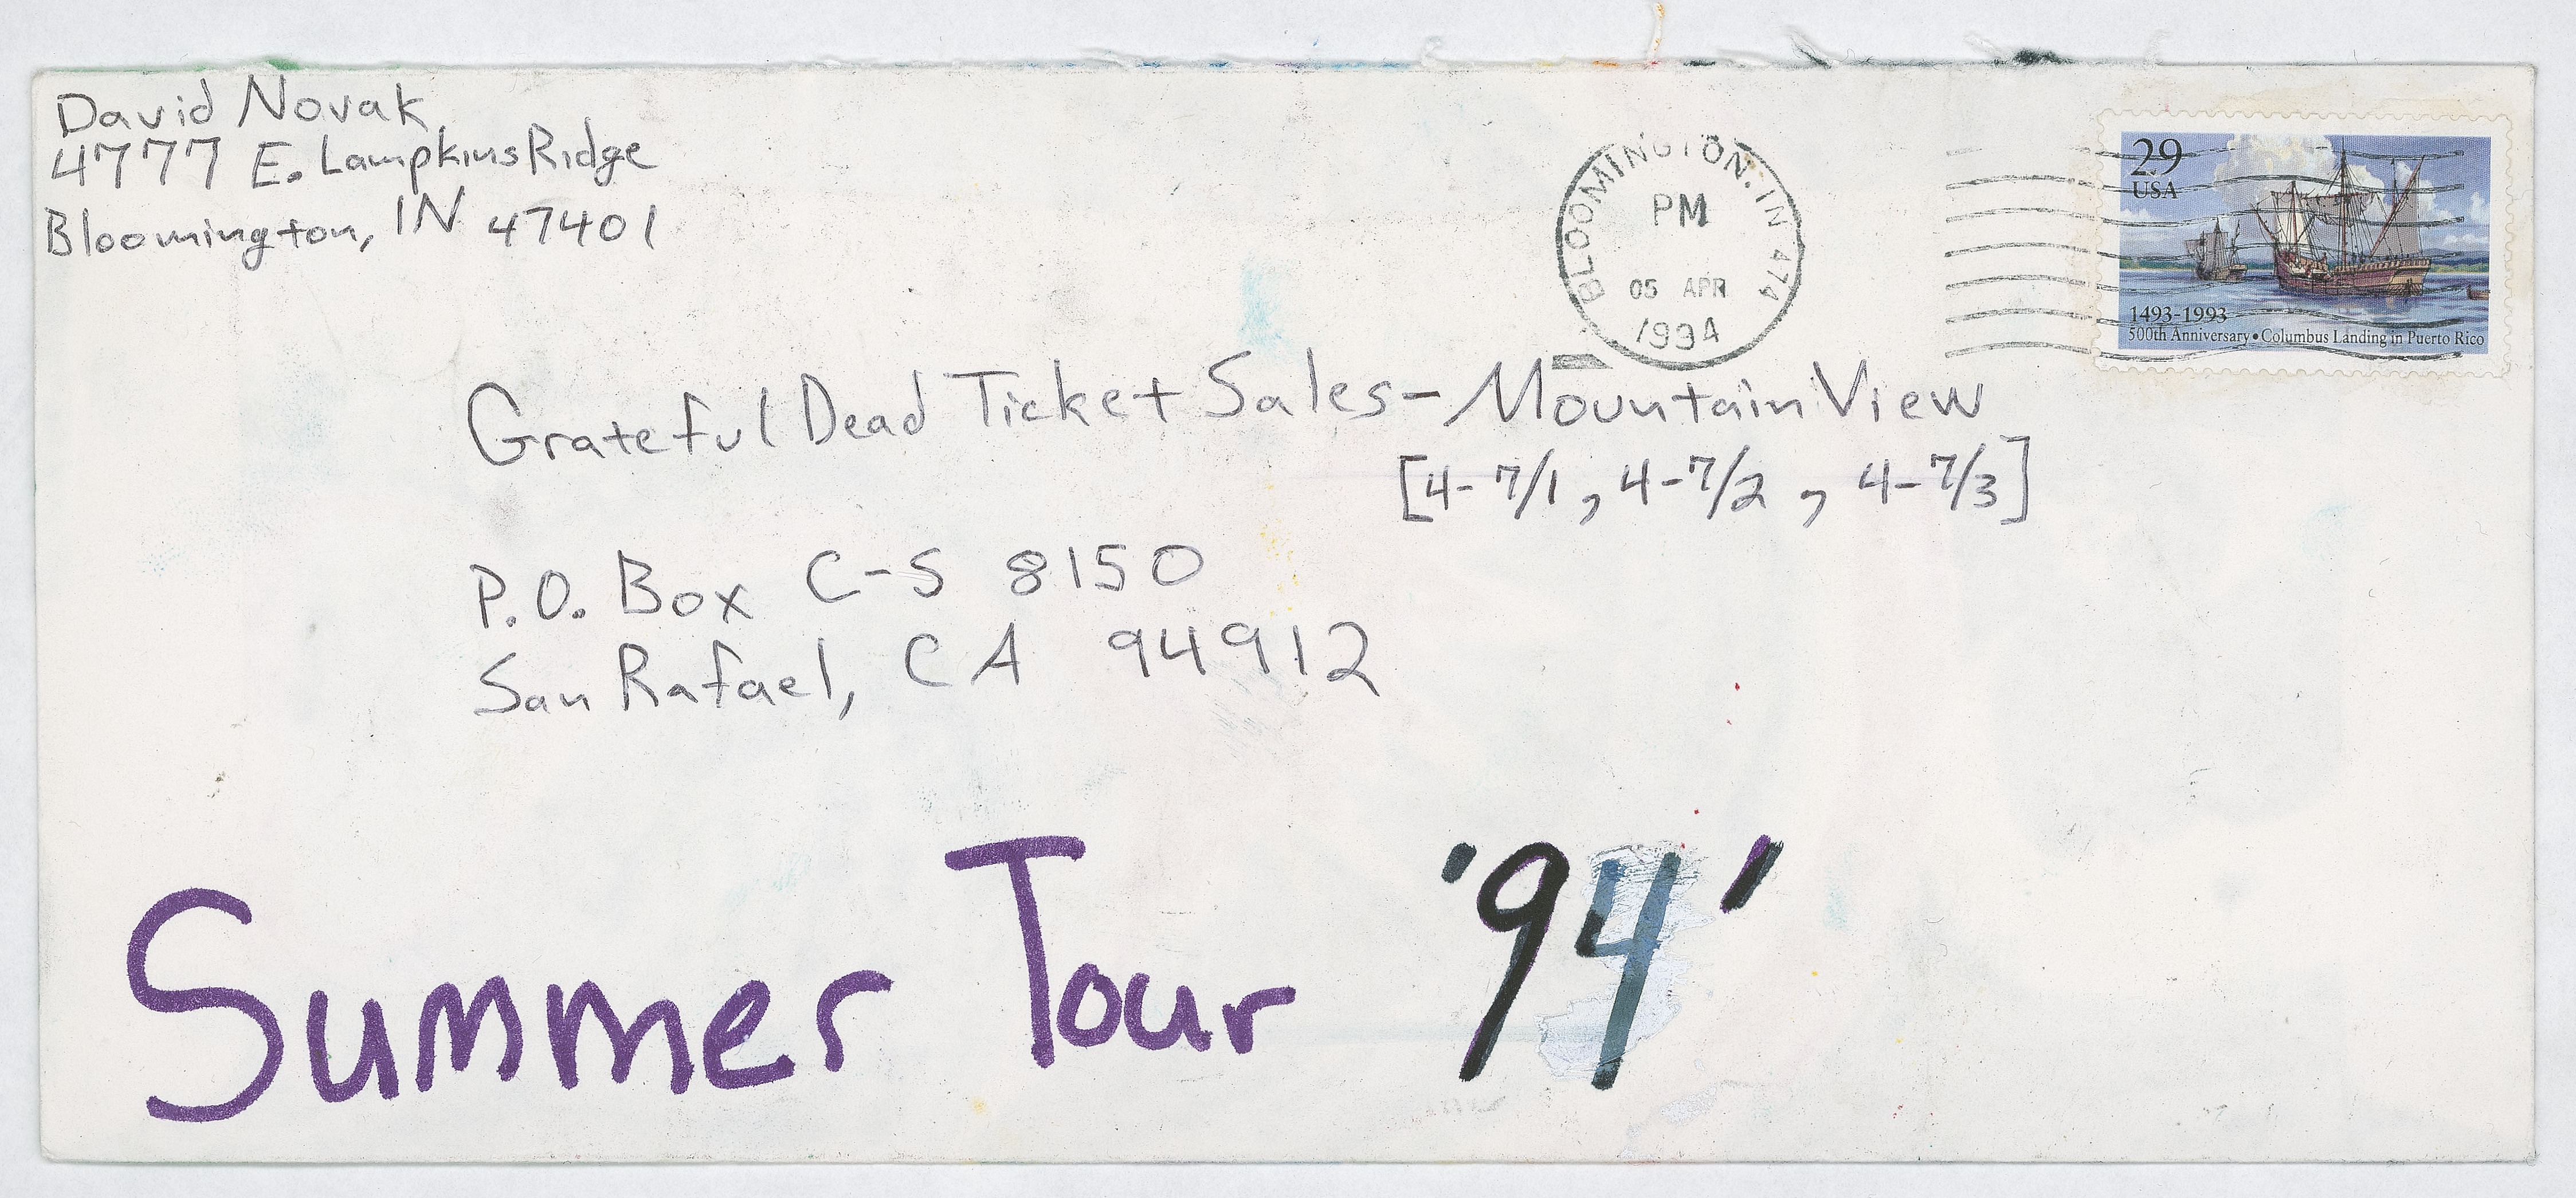 David Novak
4777 E. Lampkins Ridge
Bloomington, IN 47401
BLOOMINGTON, IN 474
PM
05 APR
1994
29
USA
1493-1993
500th Anniversary • Columbus Landing in Puerto Rico
Grateful Dead Ticket Sales - Mountain View
[4-7/1, 4-7/2, 4-7/3]
P.O. Box C-S 8150
San Rafael, CA 94912
Summer Tour '94'